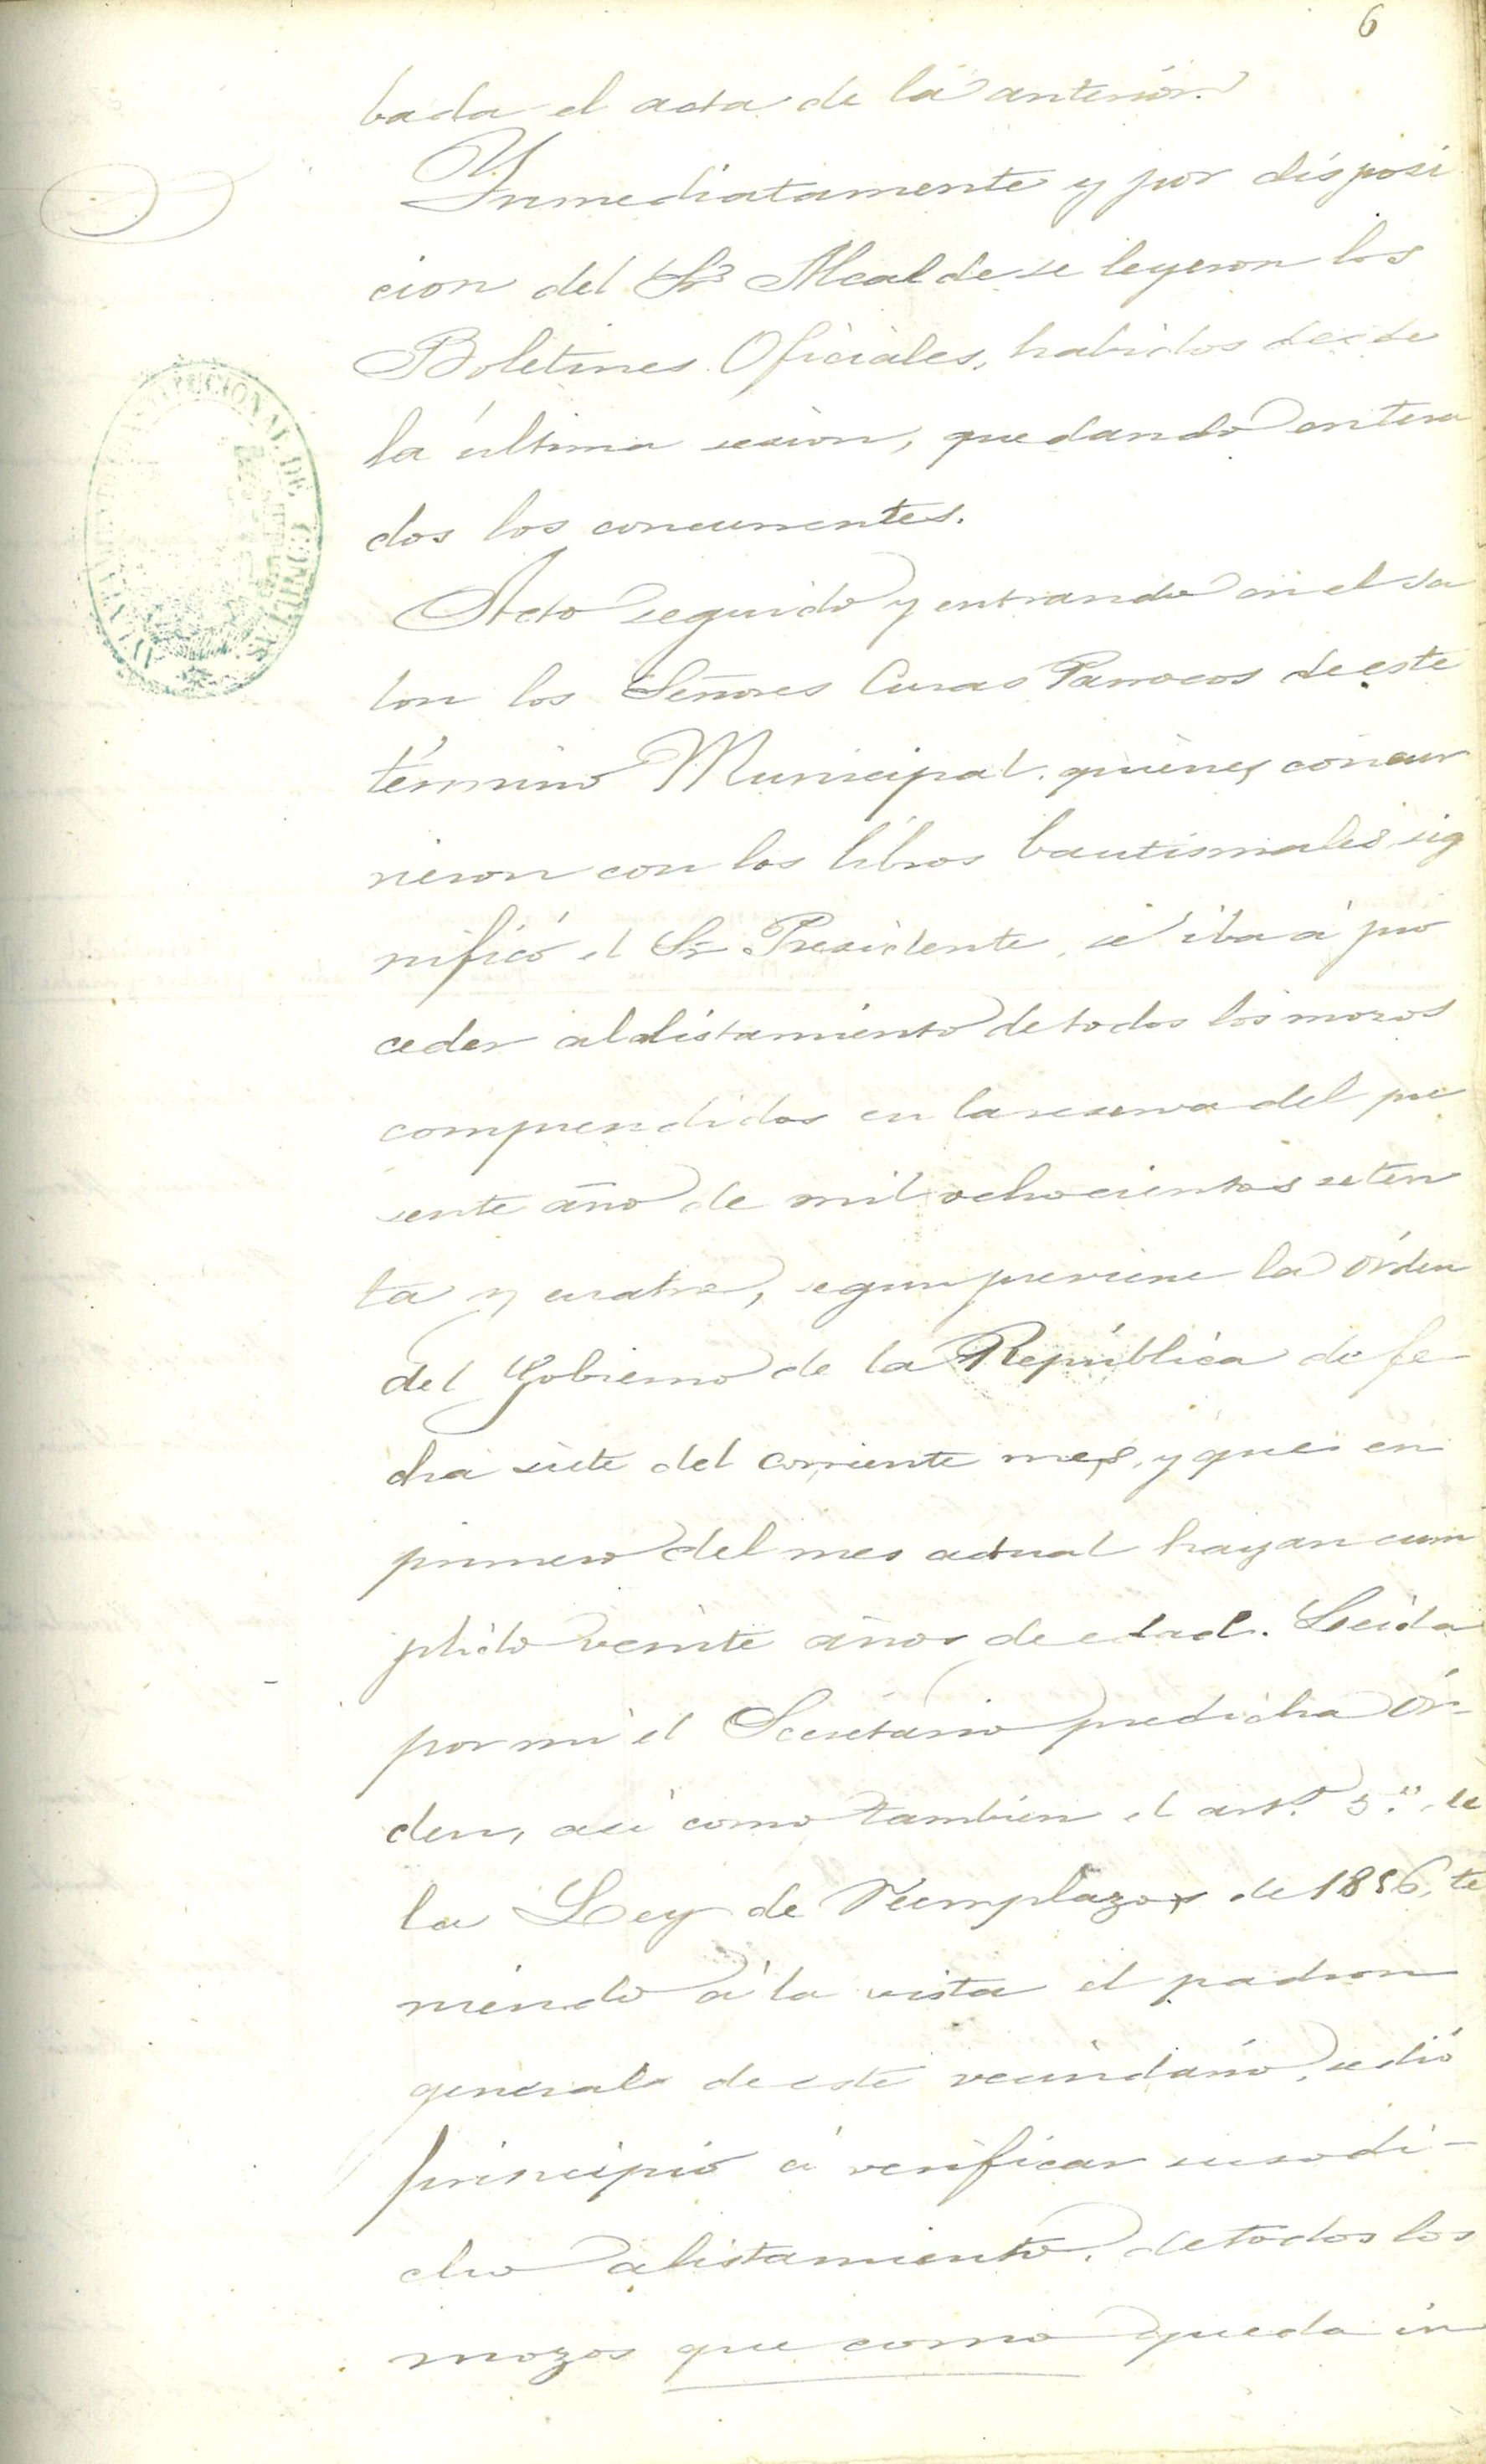 6
bada el acta de la anterior.
Ynmediatamente y por disposi
cion del Sr Alcalde se leyeron los
Boletines Oficiales, habidos desde
la última sesion, quedando entera
dos los concurrentes.
Acto seguido y entrando en el sa
lon los Señores Curas Parrocos de este
término Municipal, quienes concur
rieron con los libros bautismales, sig
nificó el Sr Presidente, se iba á pro
ceder al alistamiento de todos los mozos
comprendidos en la reserva del pre
sente año de mil ochocientos seten
ta y cuatro, segun previene la órden
del Gobierno de la República de fe-
cha siete del corriente mes, y que en
primero del mes actual hayan cum
plido veinte años de edad. Leida
por mi el Secretario predicha ór-
den, asi como tambien el artº 5º de
la Ley de Reemplazos de 1856, te
niendo á la vista el padron
general de este vecindario, se dió
principio á verificar susodi-
cho alistamiento, de todos los
mozos que como queda in
CONSTITUCIONAL DE COMILLAS